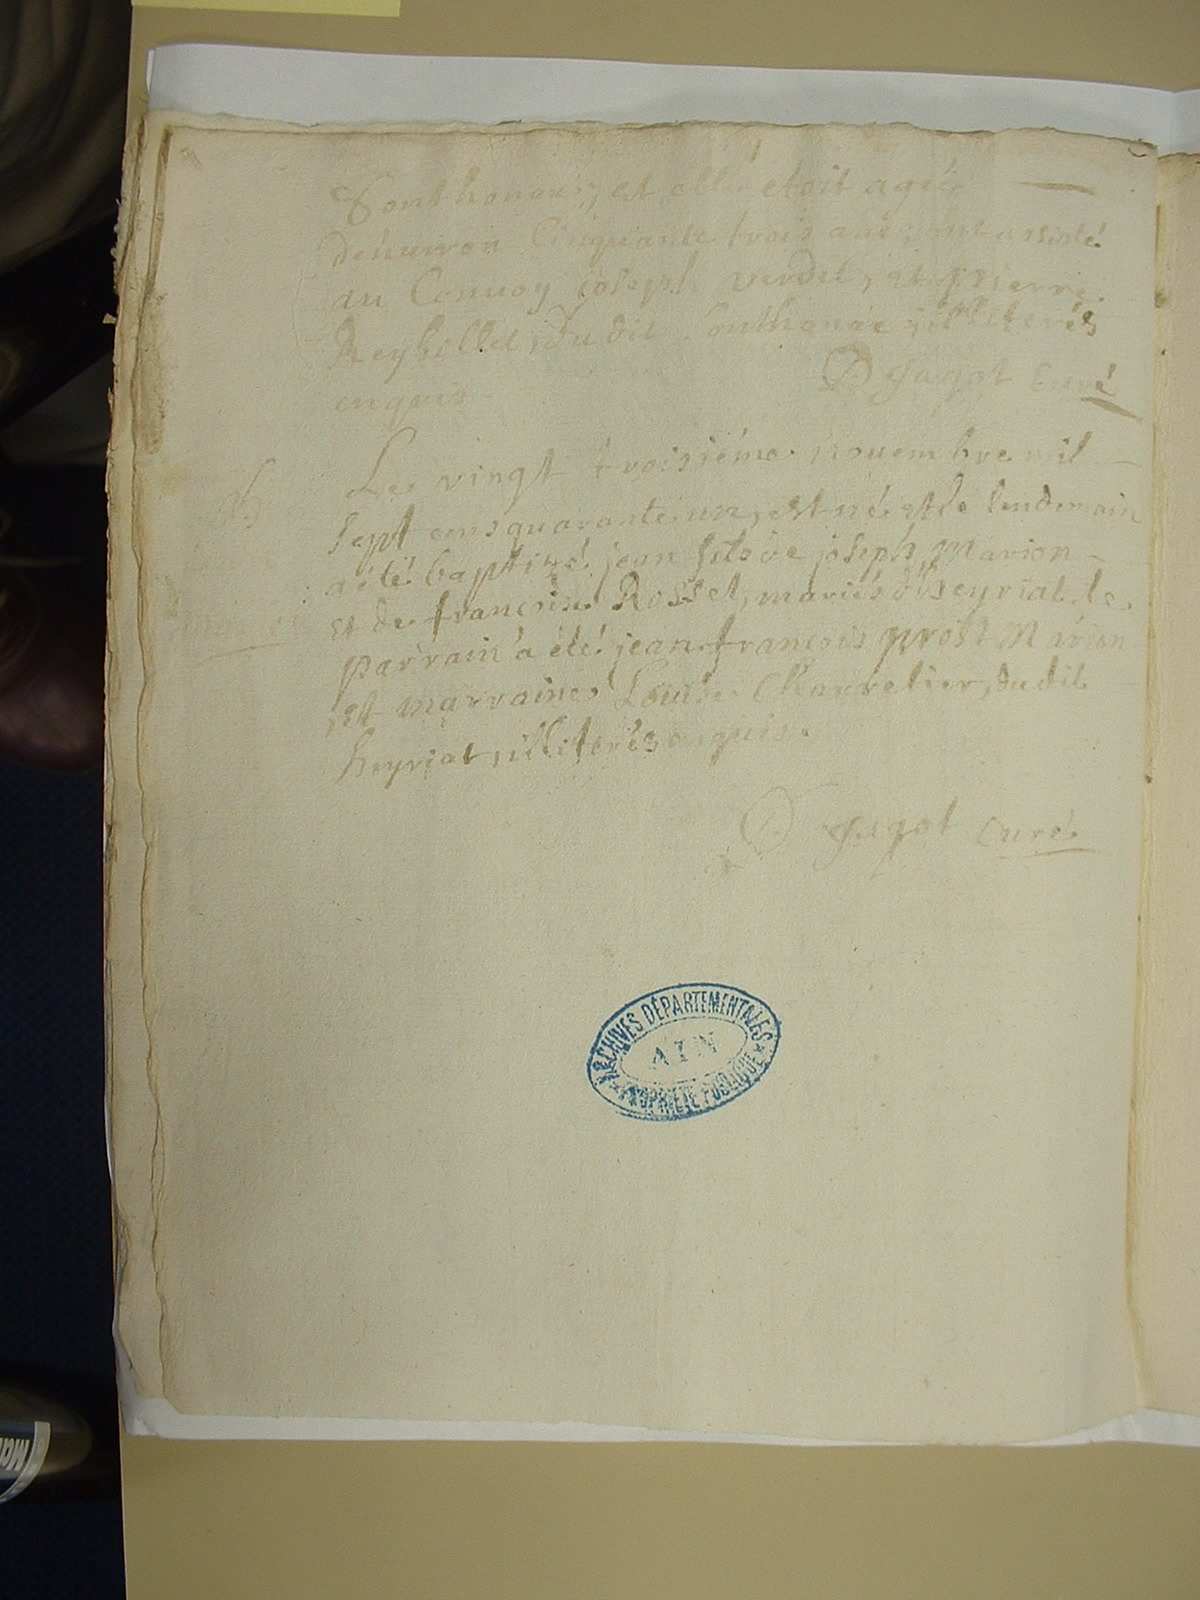 Sonthonax, et elle étoit agée
d'enuiron Cinquante trois ans, ont assisté
au Conuoy joseph verdet, et pierre
Reybillet, du dit Sonthonax illiterés
enquis.
D Jagot Curé
Le vingt troisiéme nouembre mil
sept cens quarante un, est né et le lendemain
a été baptizé jean fils de joseph Marion
et de françoise Rosset, mariés d'heyriat. le
parrain a été jean-françois prost Marion
et marraine Louise Chavretier, du dit
heyriat, illiterés enquis.
D Jagot Curé
ARCHIVES DÉPARTEMENTALES
AIN
PROPRIÉTÉ PUBLIQUE